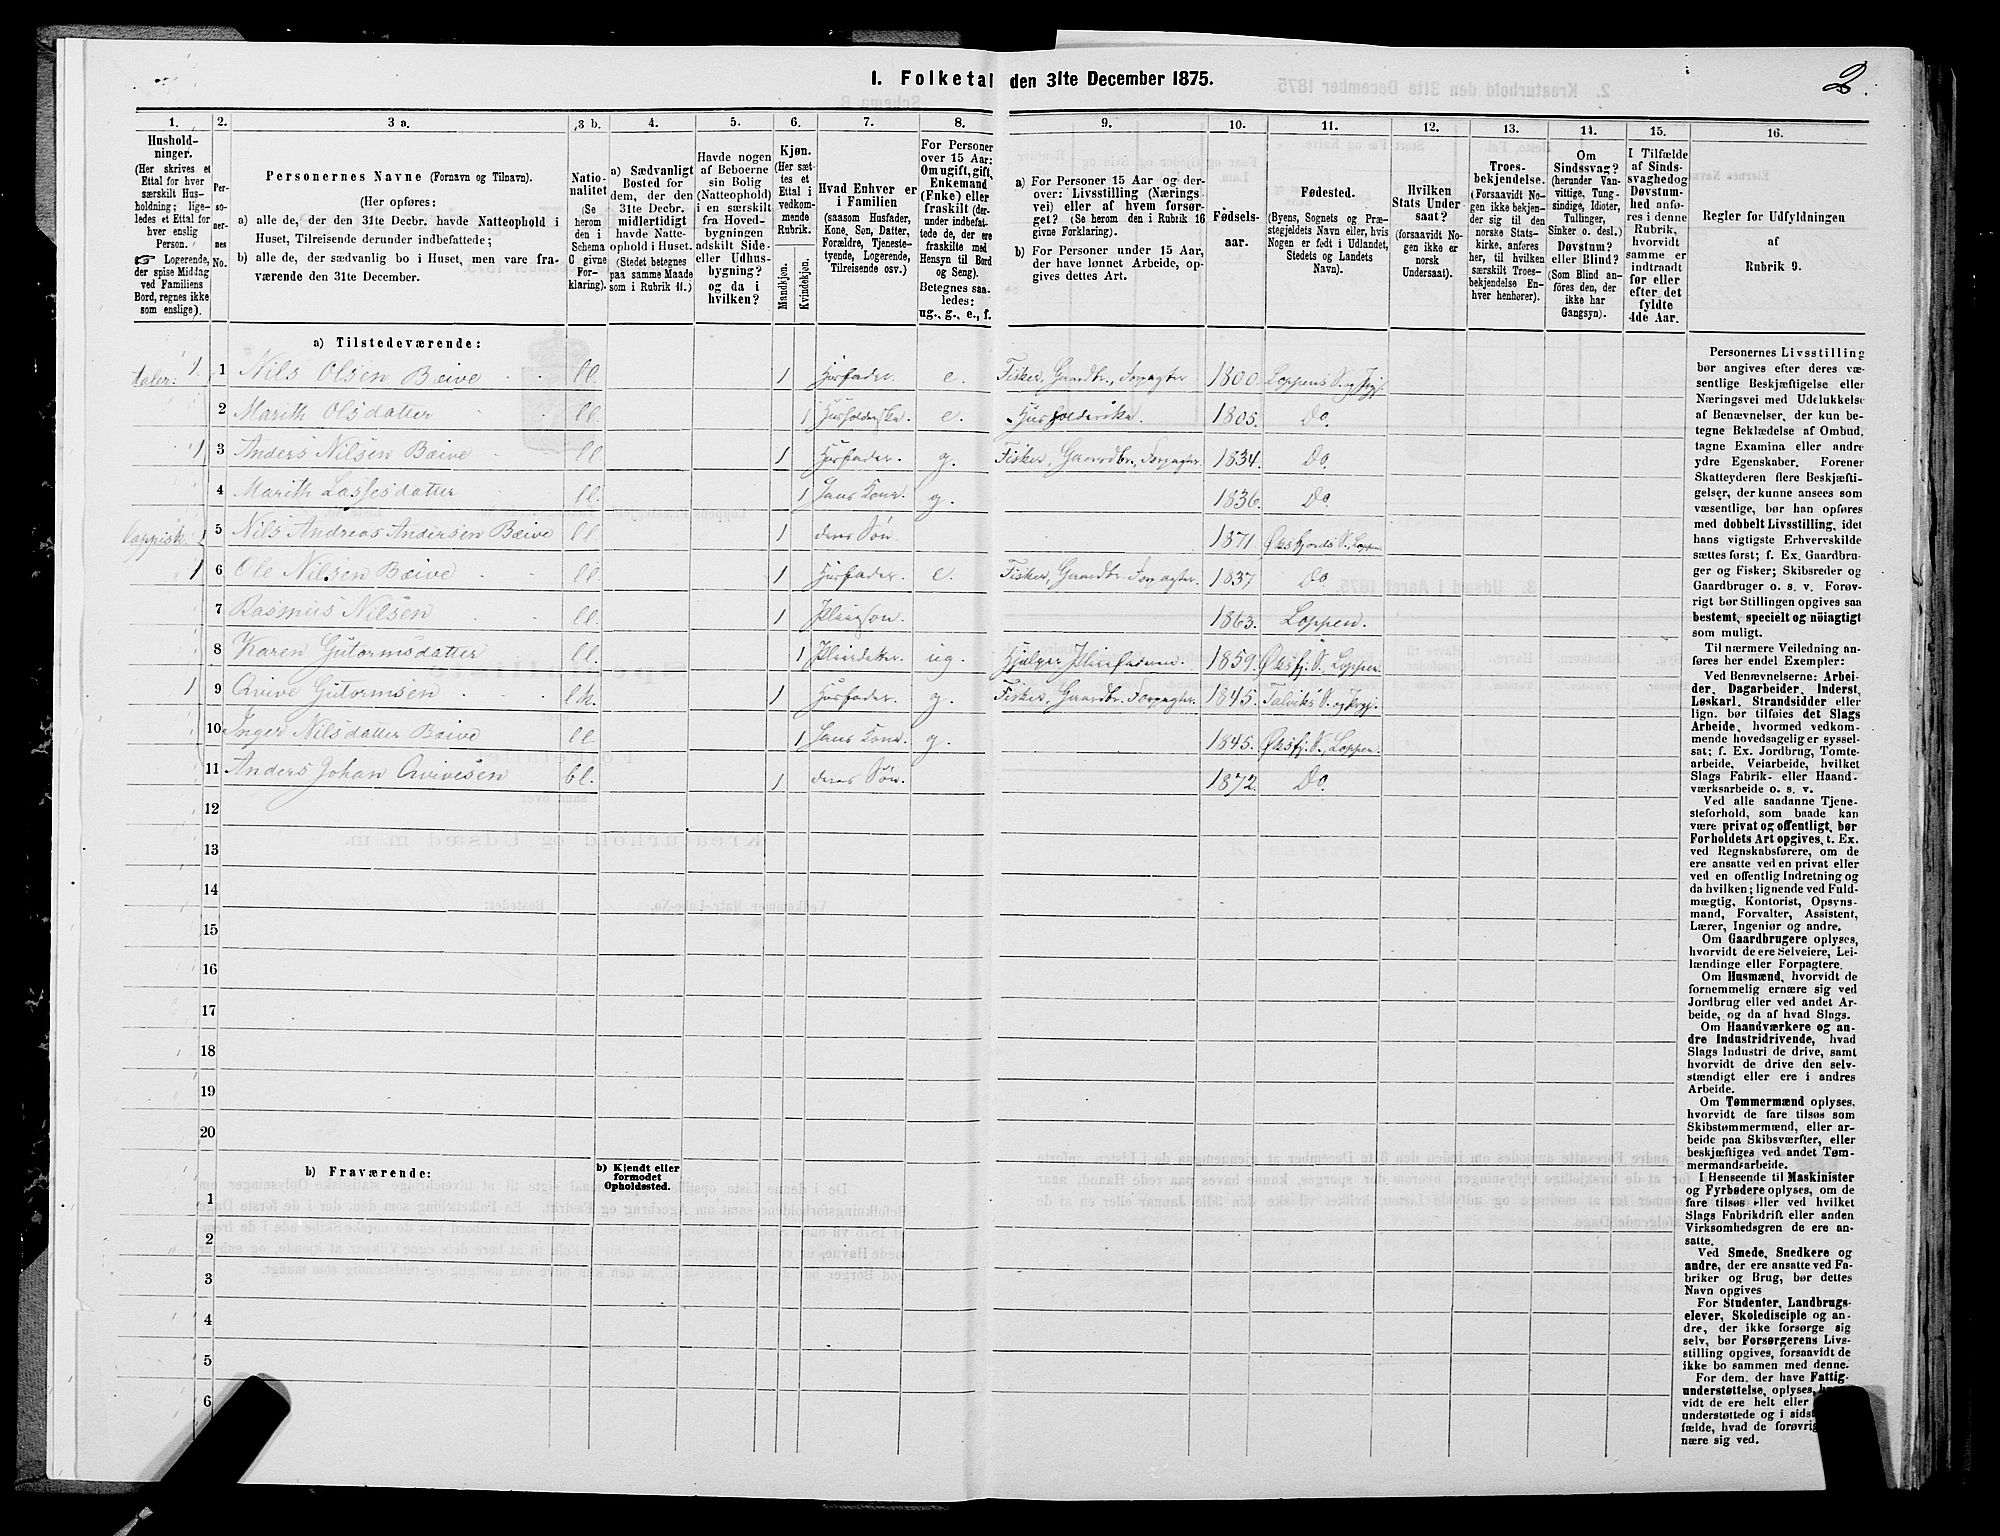 I. Folketal den 31te December 1875.
2.
1. 2. 3 a. 3 b. 4. 5. 6. 7. 8. 9. 10. 11. 12. 13. 14. 15. 16.
Hushold-
ninger.
(Her skrives et
Ettal for hver
særskilt Hus-
holdning; lige-
ledes et Ettal for
hver enslig
Person.
☞ Logerende,
der spise Middag
ved Familiens
Bord, regnes ikke
som enslige).
Per-
so-
ner-
nes
No.
Personernes Navne (Fornavn og Tilnavn).
(Her opføres:
a) alle de, der den 31te Decbr. havde Natteophold i
Huset, Tilreisende derunder indbefattede;
b) alle de, der sædvanlig bo i Huset, men vare fra-
værende den 31te December.
Natio-
nalitet
(Se
herom
den i
Schema
C givne
For-
klaring).
a) Sædvanligt
Bosted for
dem, der den
31te Decbr.
midlertidigt
havde Natte-
ophold i Huset.
(Stedet betegnes
paa samme Maade
som i Rubrik 11.)
Havde nogen
af Beboerne
sin Bolig
(Natteophold)
i en særskilt
fra Hoved-
bygningen
adskilt Side-
eller Udhus-
bygning?
og da i
hvilken?
Kjøn.
(Her sæt-
tes et
Ettal i
vedkom-
mende
Rubrik.
Mandkjøn.
Kvindekjøn.
Hvad Enhver er
i Familien
(saasom Husfader,
Kone, Søn, Datter,
Forældre, Tjeneste-
tyende, Logerende,
Tilreisende osv.)
For Personer
over 15 Aar:
Om ugift, gift,
Enkemand
(Enke) eller
fraskilt (der-
under indbefat-
tede de, der ere
fraskilte med
Hensyn til Bord
og Seng).
Betegnes saa-
ledes:
ug., g., e., f.
a) For Personer 15 Aar og der-
over: Livsstilling (Nærings-
vei) eller af hvem forsør-
get? (Se herom den i Rubrik 16
givne Forklaring).
b) For Personer under 15 Aar,
der have lønnet Arbeide, op-
gives dettes Art.
Fødsels-
aar.
Fødested.
(Byens, Sognets og Præ-
stegjeldets Navn eller, hvis
Nogen er født i Udlandet,
Stedets og Landets
Navn).
Hvilken
Stats Under
saat?
(forsaavidt No-
gen ikke er
norsk
Undersaat).
Troes-
bekjendelse.
(Forsaavidt No-
gen ikke bekjen-
der sig til den
norske Stats-
kirke, anføres
her, til hvilken
særskilt Troes-
bekjendelse En-
hver henhører).
Om
Sindssvag?
(herunder Van-
vittige, Tung-
sindige, Idioter,
Tullinger,
Sinker o. desl.)
Døvstum?
eller Blind?
(Som Blind an-
føres den, der
ikke har
Gangsyn).
I Tilfælde
af Sinds-
svaghed og
Døvstum-
hed anfø-
res i denne
Rubrik,
hvorvidt
samme er
indtraadt
før eller
efter det
fyldte
4de Aar.
Regler for Udfyldningen
af
Rubrik 9.
a) Tilstedeværende:
taler: 1. 1 Nils Olsen Bæive ll. 1 Husfader. e. Fisker, Gaardbr., Forpagter 1800. Loppens S. og Prgj.
2 Marith Olsdatter ll. 1 Husholderske. e. Husholderske. 1805. Do.
1 3 Anders Nilsen Bæive ll. 1 Husfader. g. Fisker, Gaardbr., Forpagter. 1834. Do.
4 Marith Lassesdatter ll. 1 Hans Kone. g. 1836. Do.
lappisk. 5 Nils Andreas Andersen Bæive ll. 1 deres Søn. 1871. Øksfjords S., Loppen.
1 6 Ole Nilsen Bæive ll. 1 Husfader. e. Fisker, Gaardbr. Forpagter. 1837 Do.
7 Rasmus Nilsen ll. 1 Pleiesøn. 1863. Loppen.
8 Karen Gutormsdatter ll. 1 Pleiedatter. ug. Hjælper Pleiefaderen. 1859. Øksfj. S. Loppen.
1 9 Avive Gutormsen lk. 1 Husfader. g. Fisker, Gaardbr. Forpagter. 1845. Talviks S. og Prgj.
10 Inger Nilsdatter Bæive ll. 1 Hans Kone. g. 1845. Øksfj. S., Loppen.
11 Anders Johan Avivesen bl. 1 deres Søn. 1872. Do.
12
13
14
15
16
17
18
19
20
b) Fraværende:
b) Kjendt eller
formodet
Opholdssted.
1
2
3
4
5
6
Personernes Livsstilling
bør angives efter deres væ-
sentlige Beskjæftigelse eller
Næringsvei med Udelukkelse
af Benævnelser, der kun be-
tegne Beklædelse af Ombud,
tagne Examina eller andre
ydre Egenskaber. Forener
Skatteyderen flere Beskjæfti-
gelser, der kunne ansees som
væsentlige, bør han opføres
med dobbelt Livsstilling, idet
hans vigtigste Erhvervskilde
sættes først; f. Ex. Gaardbru-
ger og Fisker; Skibsreder og
Gaardbruger o. s. v. Forøv-
rigt bør Stillingen opgives saa
bestemt, specielt og nöiagtigt
som muligt.
Til nærmere Veiledning an-
føres her endel Exempler:
Ved Benævnelserne: Arbei-
der, Dagarbeider, Inderst,
Løskarl, Strandsidder eller
lign. bør tilføies det Slags
Arbeide, hvormed vedkom-
mende hovedsagelig er syssel-
sat; f. Ex. Jordbrug, Tomte-
arbeide, Veiarbeide, hvilket
Slags Fabrik- eller Haand-
værksarbeide o. s. v.
Ved alle saadanne Tjene-
steforhold, som baade kan
være privat og offentligt, bør
Forholdets Art opgives, t. Ex.
ved Regnskabsførere, om de
ere ansatte ved en privat eller
ved en offentlig Indretning og
da hvilken; lignende ved Fuld-
mægtig, Kontorist, Opsyns-
mand, Forvalter, Assistent,
Lærer, Ingeniør og andre.
Om Gaardbrugere oplyses,
hvorvidt de ere Selveiere, Lei-
lændinge eller Forpagtere.
Om Husmænd, hvorvidt de
fornemmelig ernære sig ved
Jordbrug eller ved andet Ar-
beide, og da af hvad Slags.
Om Haandværkere og an-
dre Industridrivende, hvad
Slags Industri de drive, samt
hvorvidt de drive den selv-
stændigt eller ere i andres
Arbeide.
Om Tømmermænd oplyses,
hvorvidt de fare tilsøs som
Skibstømmermænd, eller ar-
beide paa Skibsværfter, eller
beskjæftiges ved andet Tøm-
mermandsarbeide.
I Henseende til Maskinister
og Fyrbødere oplyses, om de
fare tilsøs eller ved hvilket
Slags Fabrikdrift eller anden
Virksomhedsgren de ere an-
satte.
Ved Smede, Snedkere og
andre, der ere ansatte ved Fa-
briker og Brug, bør dettes
Navn opgives
For Studenter, Landbrugs-
elever, Skoledisciple og an-
dre, der ikke forsørge sig
selv, bør Forsørgerens Livs-
stilling opgives, forsaavidt de
ikke bo sammen med denne.
For dem, der have Fattig-
understøttelse, oplyses,
vidt de ere helt eller
understøttede og i sidst
fælde, hvad de forøvrig
nære sig ved.